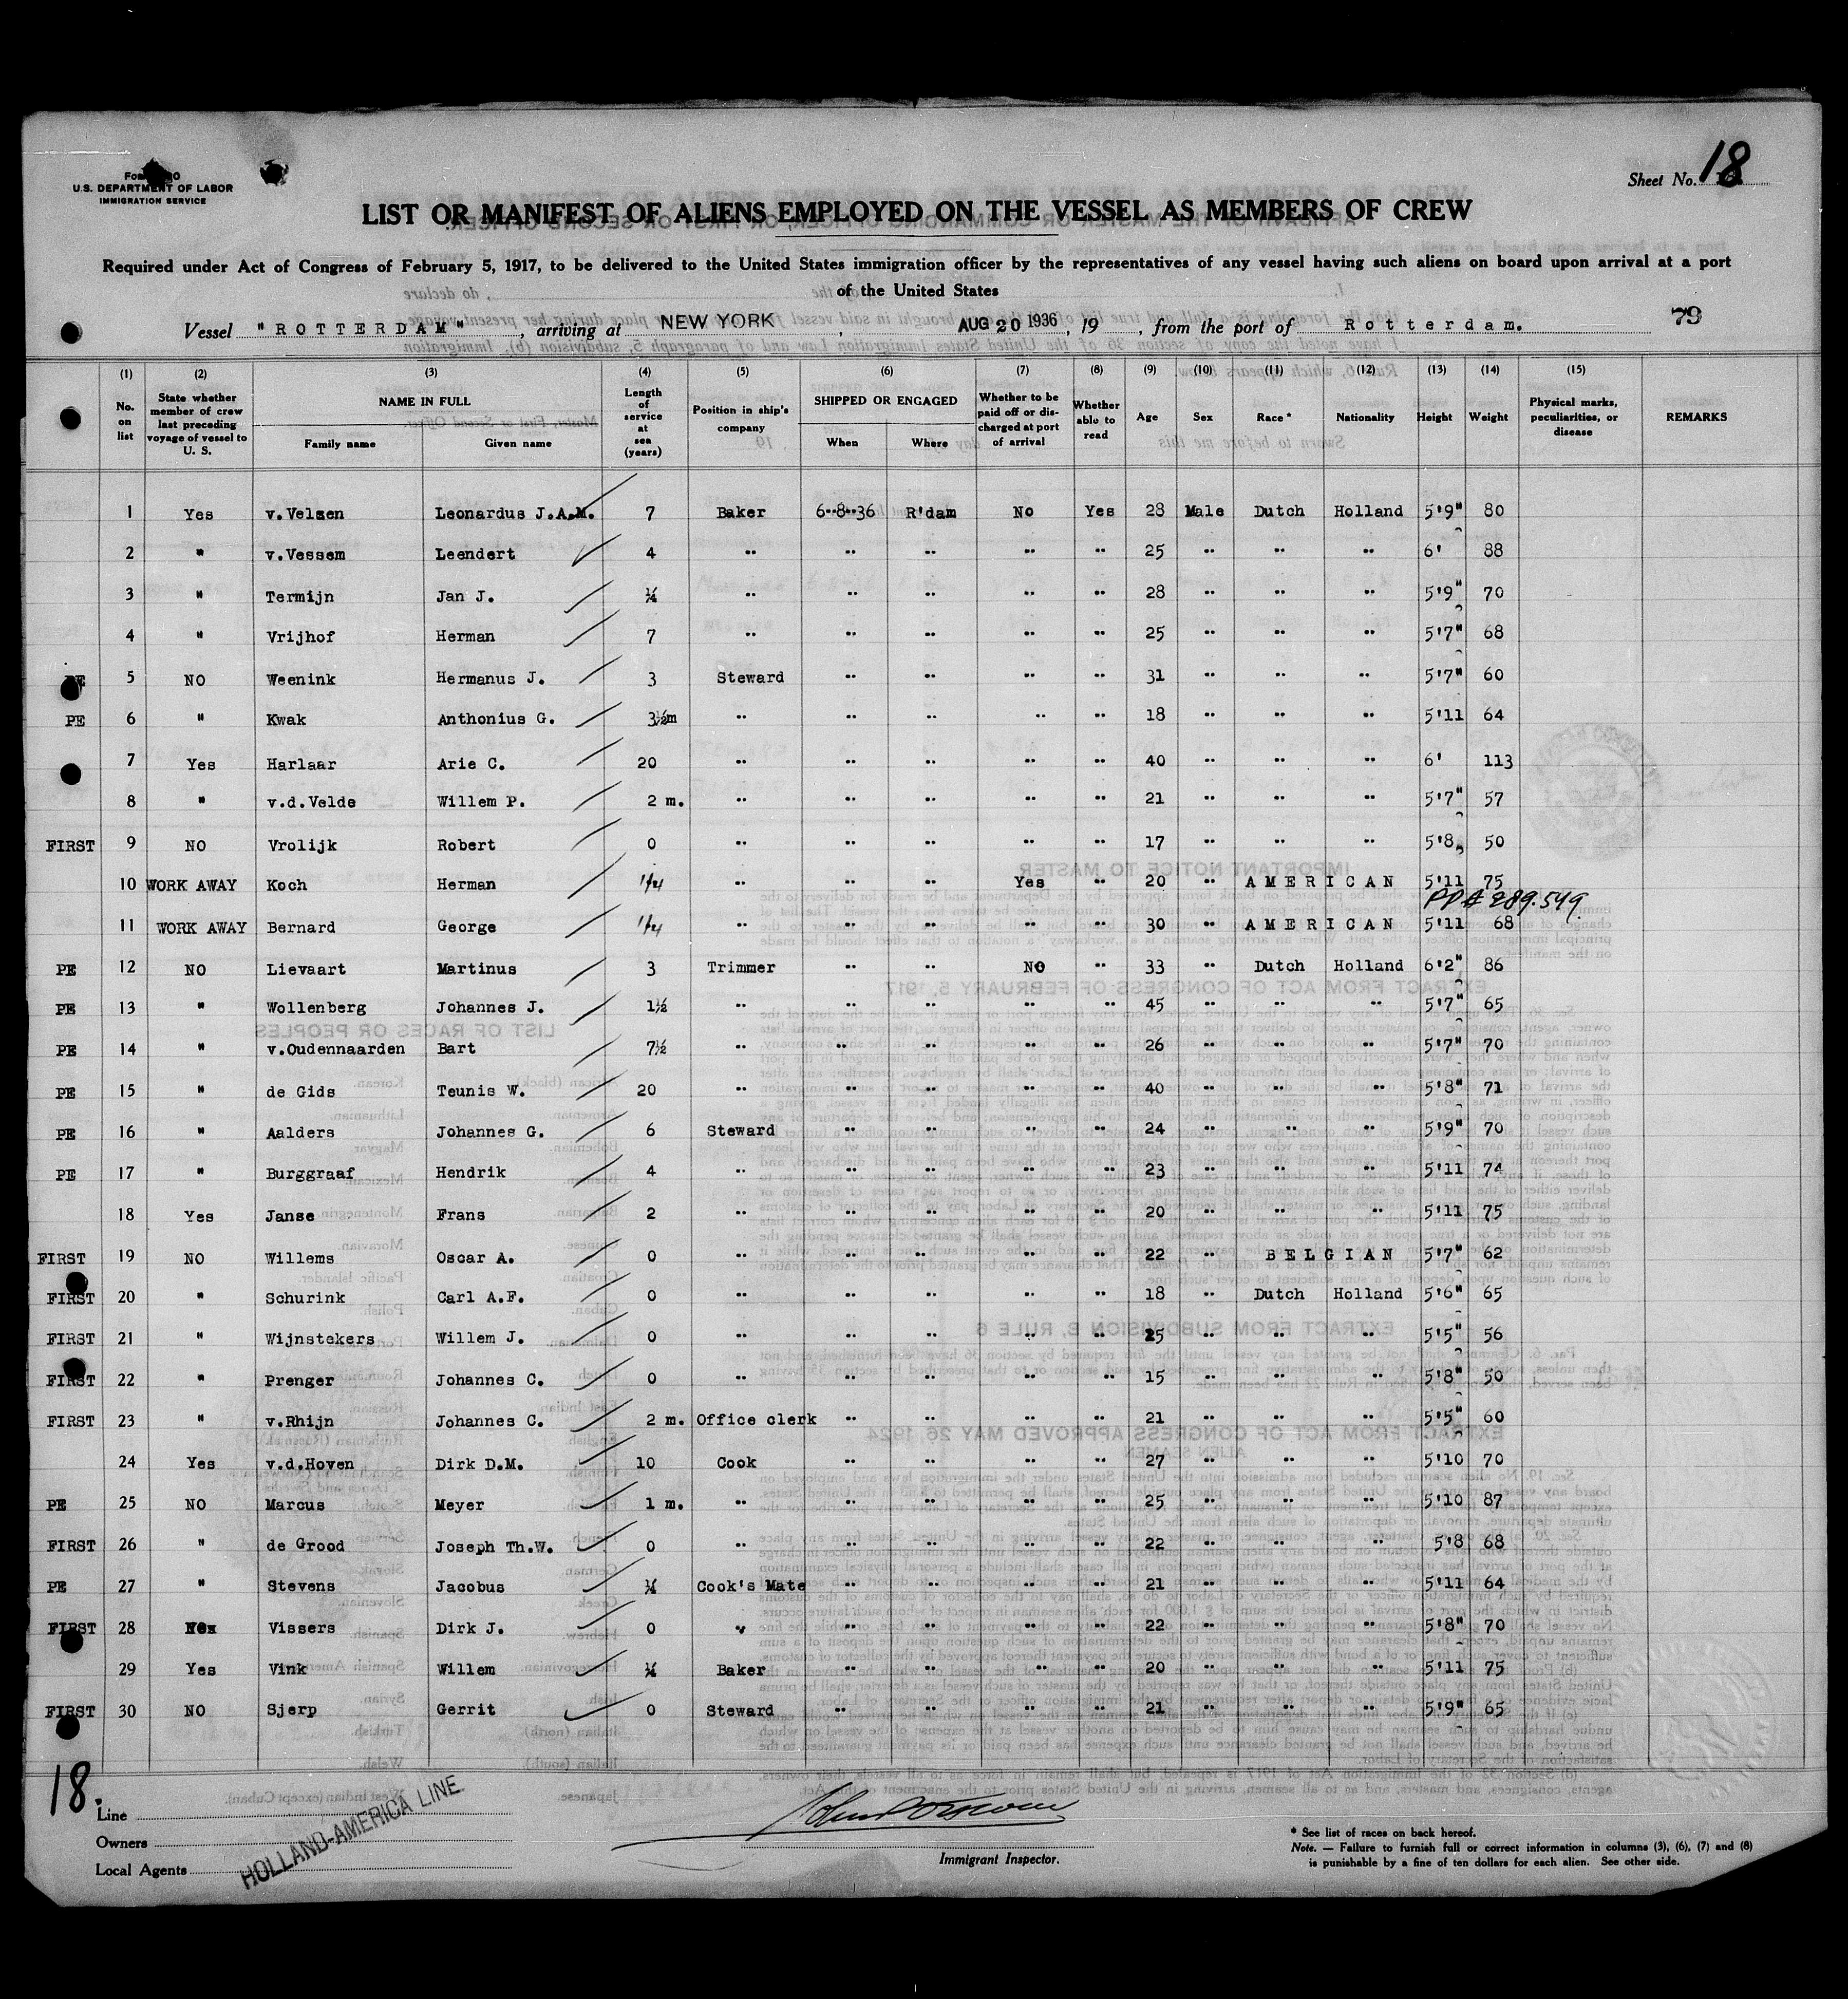 Form 680
U.S. DEPARTMENT OF LABOR
IMMIGRATION SERVICE
Sheet No. 18
LIST OR MANIFEST OF ALIENS EMPLOYED ON THE VESSEL AS MEMBERS OF CREW
Required under Act of Congress of February 5, 1917, to be delivered to the United States immigration officer by the representatives of any vessel having such aliens on board upon arrival at a port
of the United States
Vessel "ROTTERDAM", arriving at NEW YORK, AUG 20 1936, 19 , from the port of Rotterdam. 79
(1) (2) (3) (4) (5) (6) (7) (8) (9) (10) (11) (12) (13) (14) (15)
No. on list State whether member of crew last preceding voyage of vessel to U. S. NAME IN FULL Family name Given name Length of service at sea (years) Position in ship's company SHIPPED OR ENGAGED When Where Whether to be paid off or discharged at port of arrival Whether able to read Age Sex Race* Nationality Height Weight Physical marks, peculiarities, or disease REMARKS
1 Yes v.Velzen Leonardus J.A.M. 7 Baker 6-8-36 R'dam No Yes 28 Male Dutch Holland 5'9" 80
2 " v.Vessem Leendert 4 " " " " " 25 " " " 6' 88
3 " Termijn Jan J. ¼ " " " " " 28 " " " 5'9" 70
4 " Vrijhof Herman 7 " " " " " 25 " " " 5'7" 68
PE 5 NO Weenink Hermanus J. 3 Steward " " " " 31 " " " 5'7" 60
PE 6 " Kwak Anthonius G. 3½m " " " " " 18 " " " 5'11 64
7 Yes Harlaar Arie C. 20 " " " " " 40 " " " 6' 113
8 " v.d.Velde Willem P. 2 m. " " " " " 21 " " " 5'7" 57
FIRST 9 NO Vrolijk Robert 0 " " " " " 17 " " " 5'8 50
10 WORK AWAY Koch Herman " " " Yes " 20 " AMERICAN 5'11 75
PP# 289.549
11 WORK AWAY Bernard George " " " " " 30 " AMERICAN 5'11 68
PE 12 NO Lievaart Martinus 3 Trimmer " " NO " 33 " Dutch Holland 6'2" 86
PE 13 " Wollenberg Johannes J. 1½ " " " " " 45 " " " 5'7" 65
PE 14 " v.Oudennaarden Bart 7½ " " " " " 26 " " " 5'7" 70
PE 15 " de Gids Teunis W. 20 " " " " " 40 " " " 5'8" 71
PE 16 " Aalders Johannes G. 6 Steward " " " " 24 " " " 5'9" 70
PE 17 " Burggraaf Hendrik 4 " " " " " 23 " " " 5'11 74
18 Yes Janse Frans 2 " " " " " 20 " " " 5'11 75
FIRST 19 NO Willems Oscar A. 0 " " " " " 22 " BELGIAN 5'7" 62
FIRST 20 " Schurink Carl A.F. 0 " " " " " 18 " Dutch Holland 5'6" 65
FIRST 21 " Wijnstekers Willem J. 0 " " " " " 25 " " " 5'5" 56
FIRST 22 " Prenger Johannes C. 0 " " " " " 15 " " " 5'8" 50
FIRST 23 " v.Rhijn Johannes C. 2 m. Office clerk " " " " 21 " " " 5'5" 60
24 Yes v.d.Hoven Dirk D.M. 10 Cook " " " " 27 " " " 5'10 70
PE 25 NO Marcus Meyer 1 m. " " " " " 25 " " " 5'10 87
FIRST 26 " de Grood Joseph Th.W. 0 " " " " " 22 " " " 5'8 68
PE 27 " Stevens Jacobus ¼ Cook's Mate " " " " 21 " " " 5'11 64
FIRST 28 Vissers Dirk J. 0 " " " " " 22 " " " 5'8" 70
29 Yes Vink Willem ¼ Baker " " " " 20 " " " 5'11 75
FIRST 30 NO Sjerp Gerrit 0 Steward " " " " 21 " " " 5'9" 65
18.
Line
Owners
Local Agents
HOLLAND-AMERICA LINE
Immigrant Inspector.
* See list of races on back hereof.
Note. — Failure to furnish full or correct information in columns (3), (6), (7) and (8)
is punishable by a fine of ten dollars for each alien. See other side.